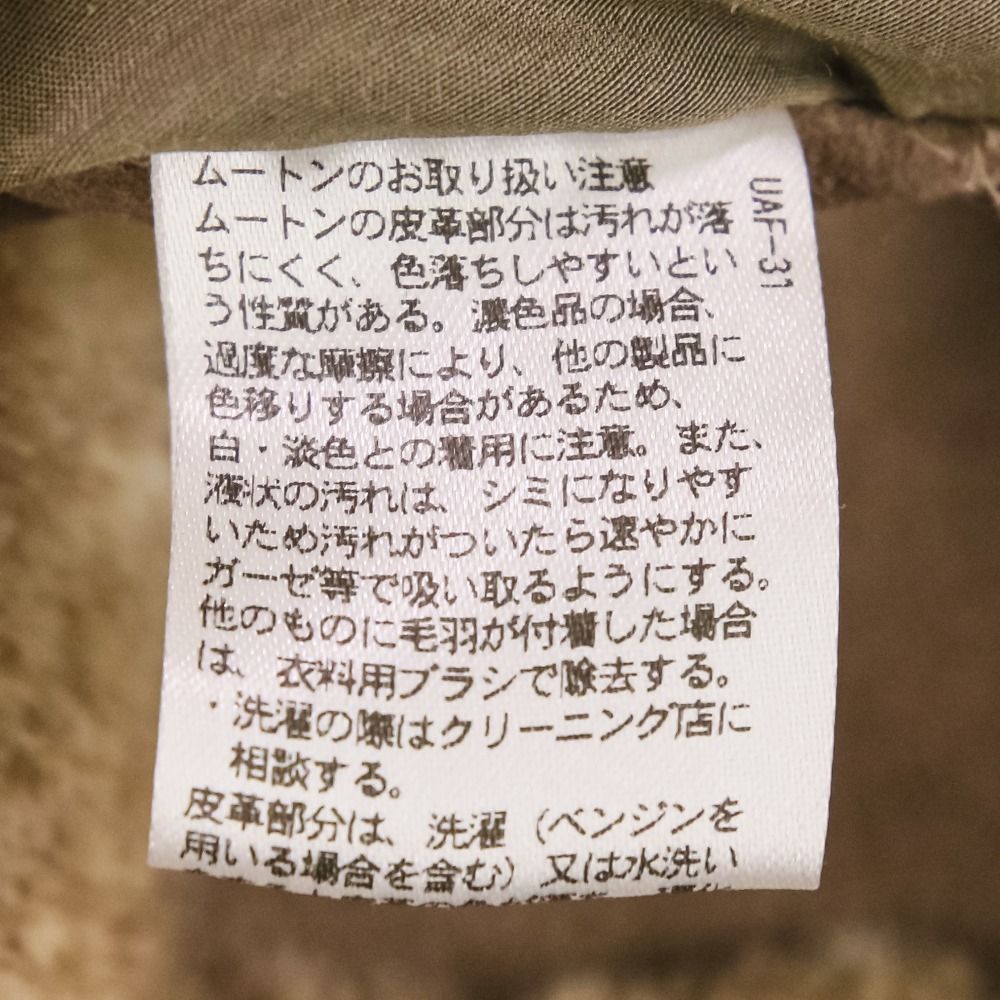 ムートンのお取り扱い注意
ムートンの皮革部分は汚れが落
ちにくく、色落ちしやすいとい
う性質がある。濃色品の場合、
過度な摩擦により、他の製品に
色移りする場合があるため、
白・淡色との着用に注意。また、
液状の汚れは、シミになりやす
いため汚れがついたら速やかに
ガーゼ等で吸い取るようにする。
他のものに毛羽が付着した場合
は、衣料用ブラシで除去する。
・洗濯の際はクリーニング店に
相談する。
皮革部分は、洗濯（ベンジンを
用いる場合を含む）又は水洗い
UAF-31